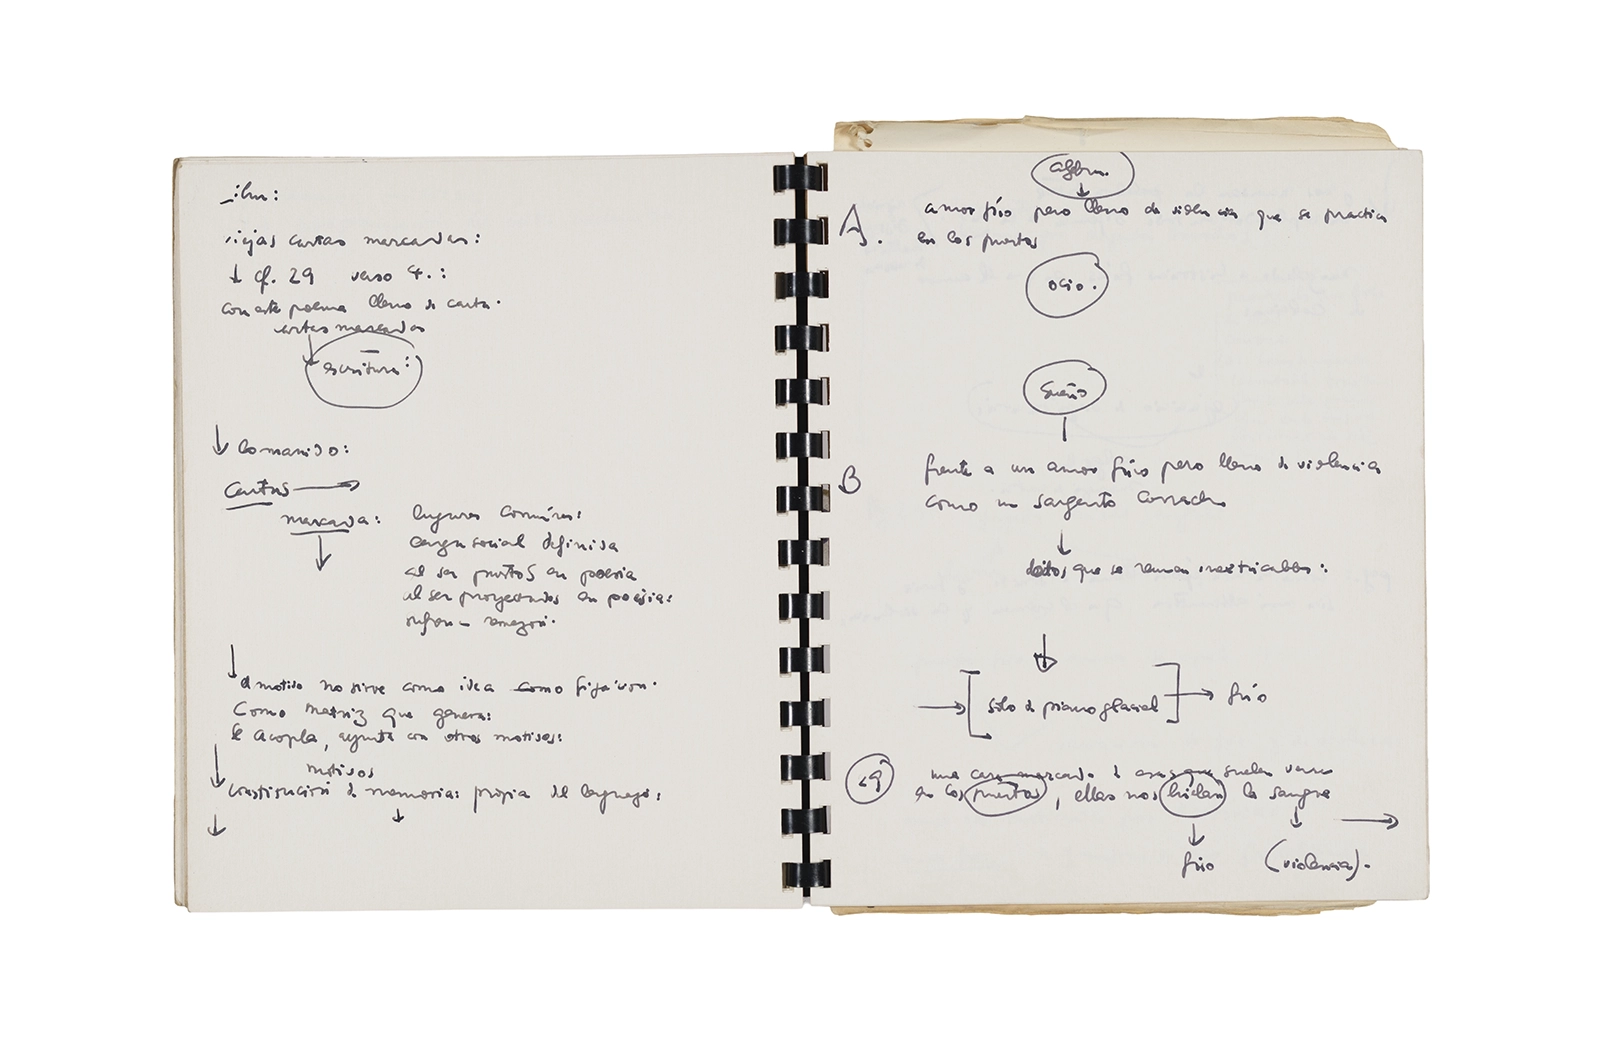 viejas cartas marcadas:
↓ cf. 29 verso 4.:
con este poema lleno de carta.
cartas marcadas
escritura:
↓ Comanido:
Cartas →
marcada: lugares comúnes:
carga social definida
al ser puestos en poesía
al ser proyectados en poesía:
↓
el motivo no sirve como idea como fijación.
Como Matriz que genera:
se acopla, ayunta con otros motivos:
motivos
↓ constitución de memoria: propia del lenguaje:
↓ ↓
↓
A. amor frío pero lleno de violencia que se practica
en los puertos
ocio.
Sueño
B frente a un amor frío pero lleno de violencia
como un sargento borracho
↓
que se reman inextricables:
↓
→ [sólo de piano glacial] → frío
29 una marcada de esas que suelen verse
en los puertos, ellas nos hielan la sangre
↓ ↓ →
frío (violencia).